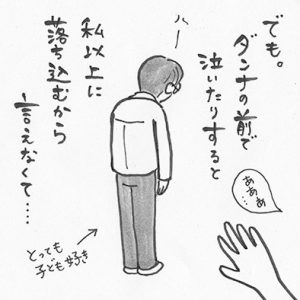 でも。
ダンナの前で
泣いたりすると
私以上に
落ち込むから
言えなくて……
あああ…
とっても
子ども好き